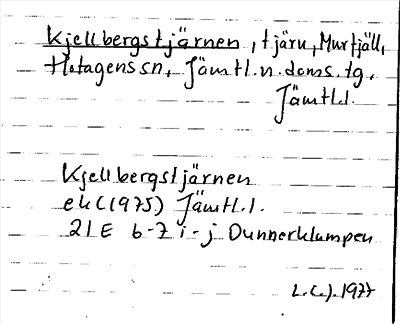 Kjellbergstjärnen, tjärn, Murfjäll,
Hotagens sn, Jämtl.n.doms.tg,
Jämtl.l.
Kjellbergstjärnen
ek (1975) Jämtl.l.
21E 6-7 i-j Dunnerklumpen
1977